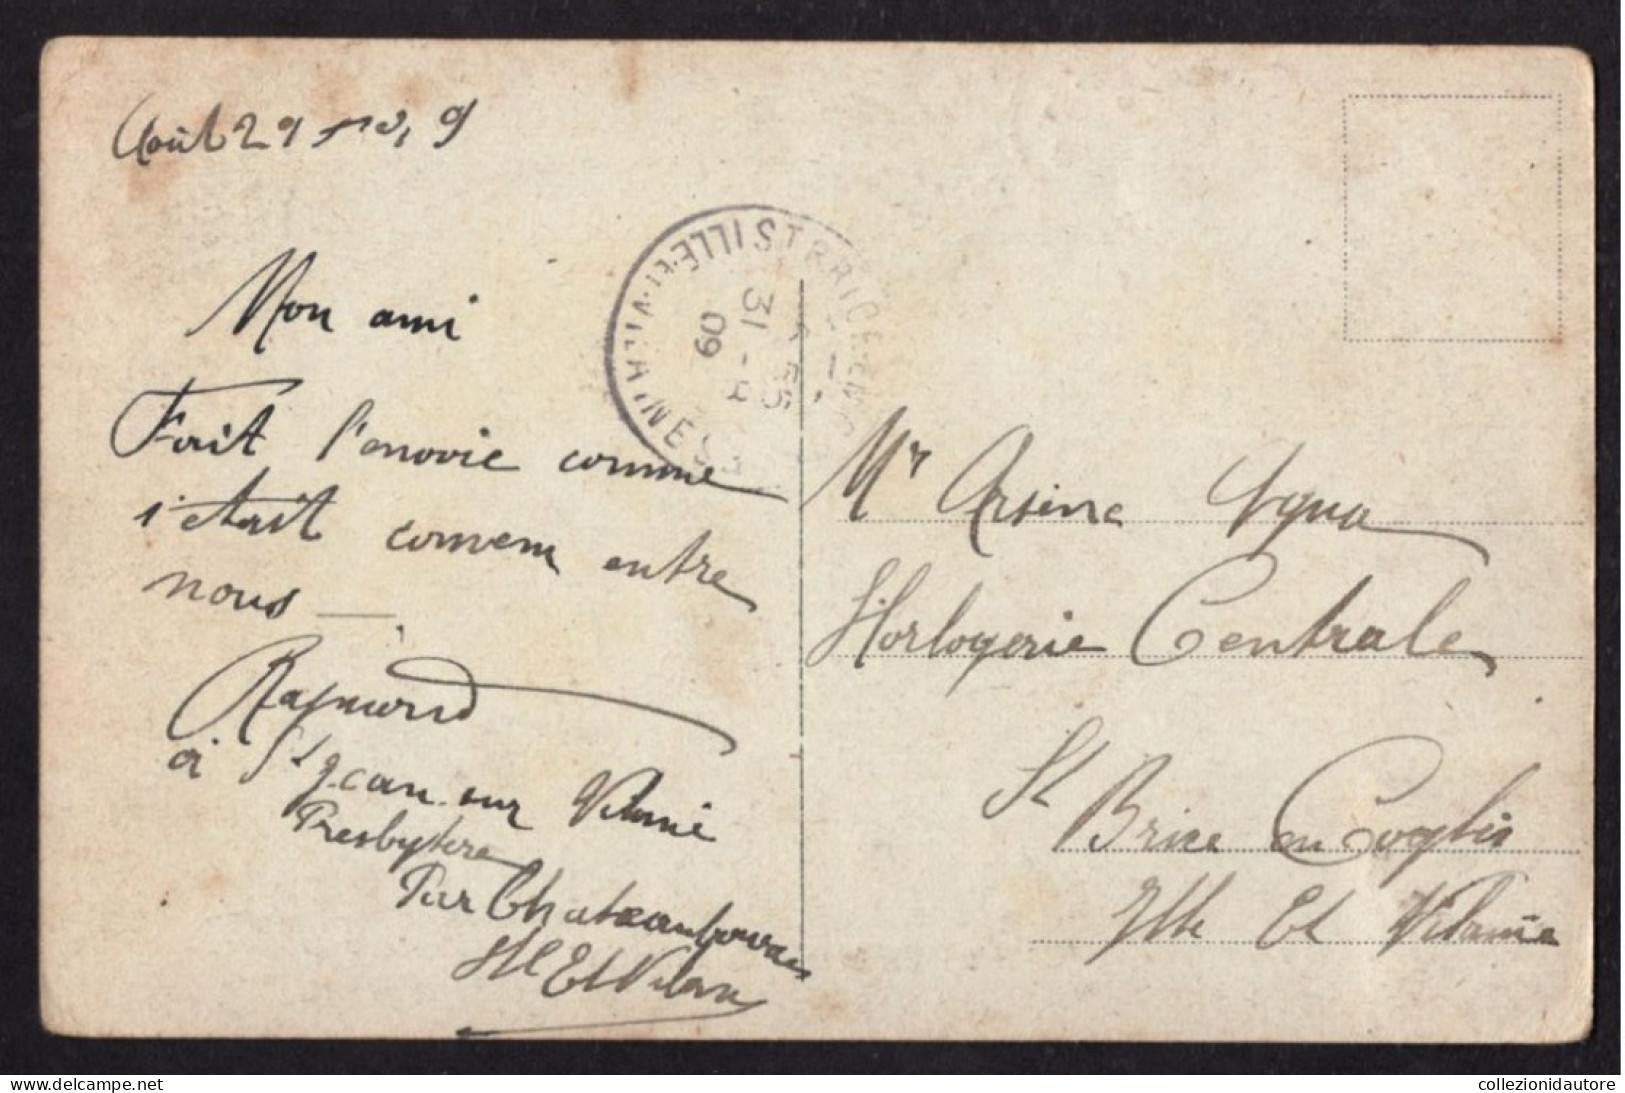 Août 29 1909
Mon ami
Fait l'enovie comme
s'etait convenu entre
nous —.
Raymond
à St Jean sur Vilaine
Presbytere
Par Chateaubourg
Ille Et Vilaine
ST BRICE-EN-C
ILLE-ET-VILAINE
31 - 8
09
Mr Arsène
Horlogerie Centrale
St
Brice en Coglès
Ille Et Vilaine
www.delcampe.net
collezionidautore